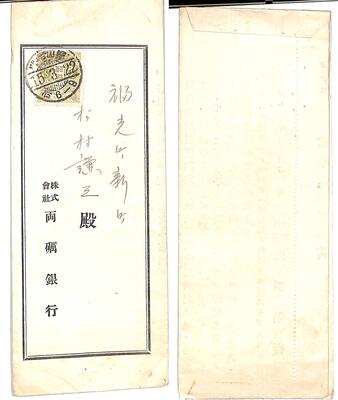 福光町新町
松村謙三 殿
株式
會社
両礪銀行
15.3.22